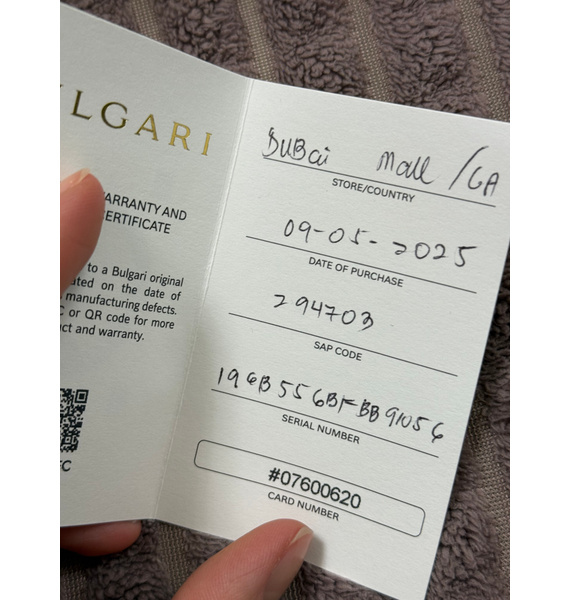 LGARI
ARRANTY AND
ERTIFICATE
to a Bulgari original
ated on the date of
manufacturing defects.
C or QR code for more
uct and warranty.
FC
DUBai Mall / GA
STORE/COUNTRY
09-05-2025
DATE OF PURCHASE
294703
SAP CODE
SERIAL NUMBER
#07600620
CARD NUMBER